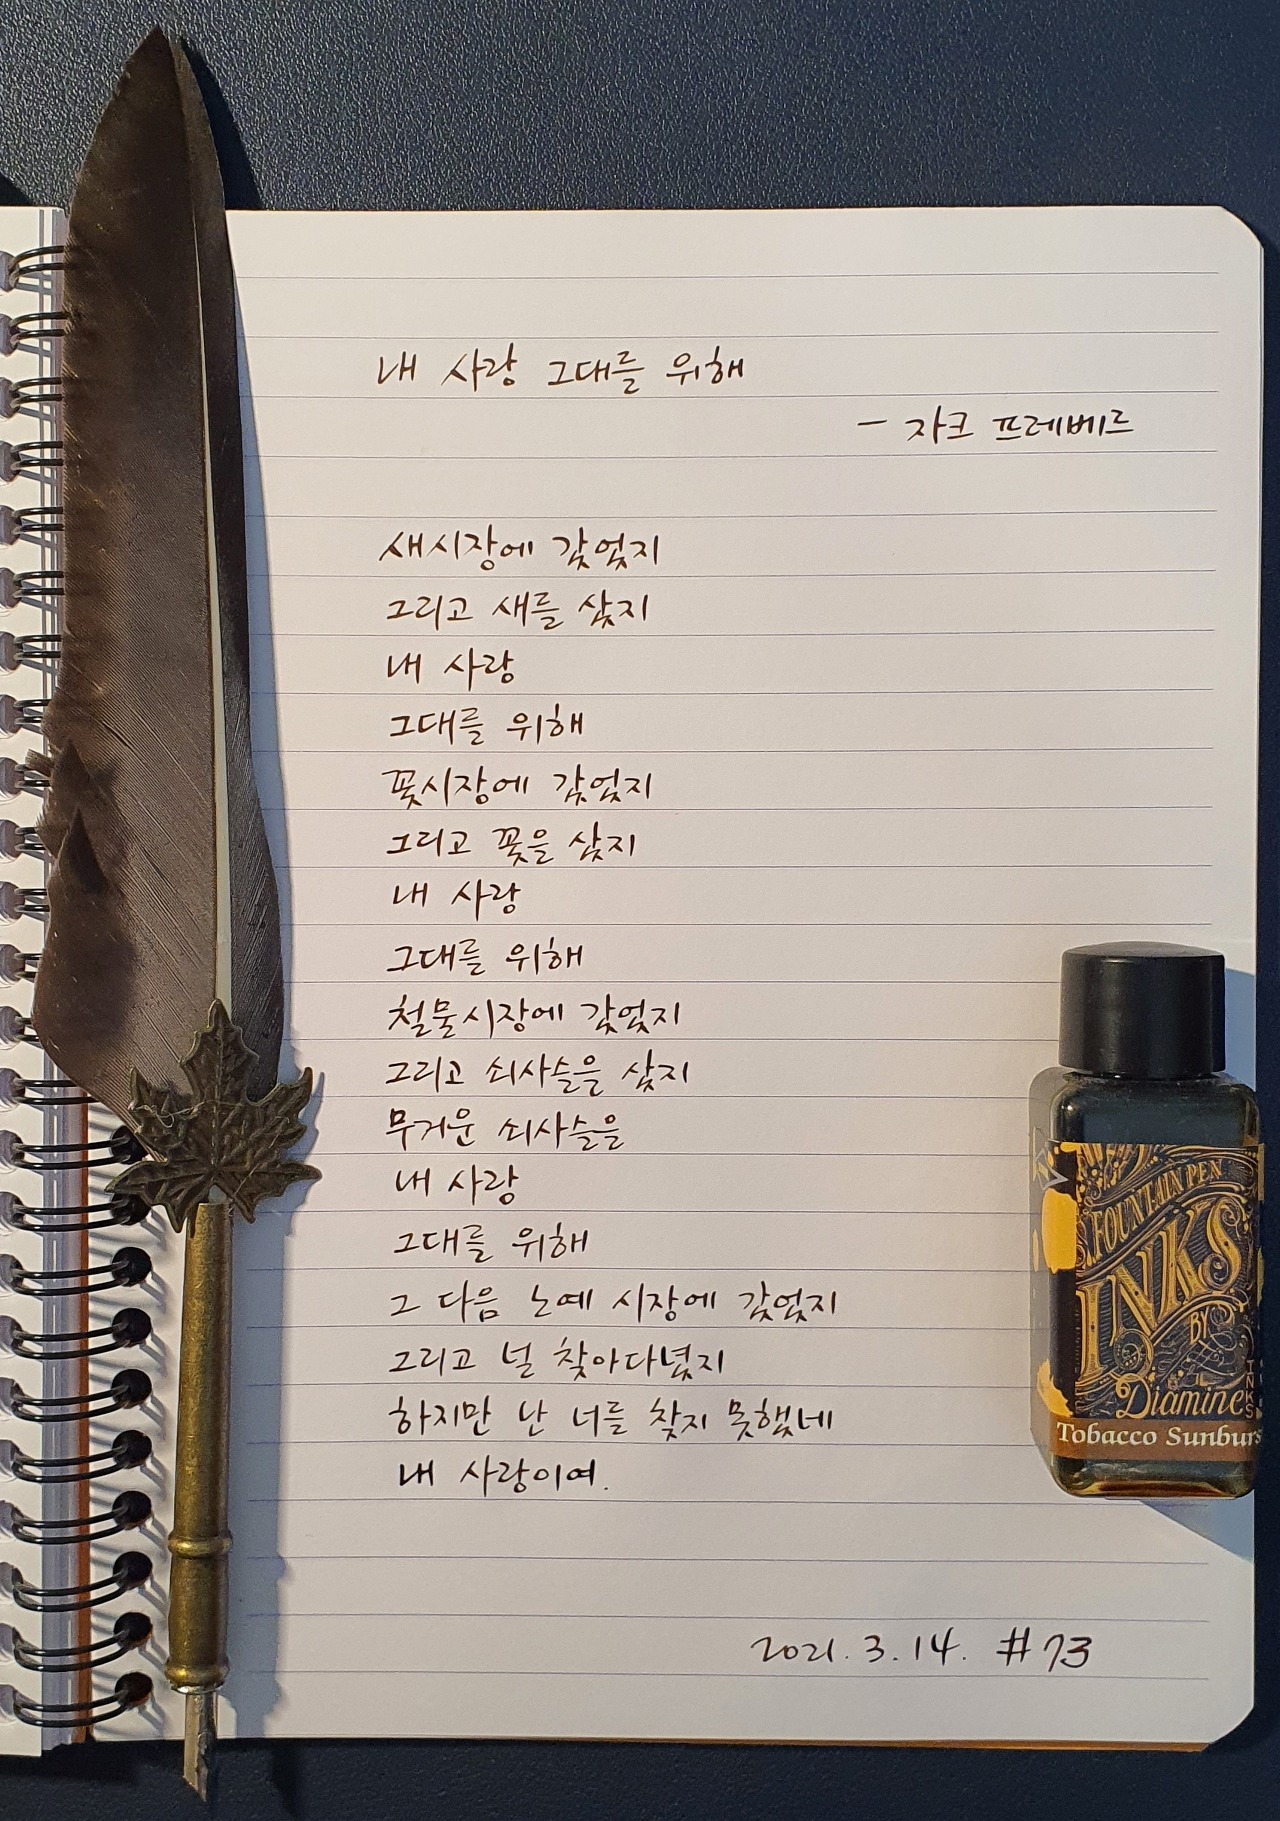 내 사랑 그대를 위해
- 자크 프레베르
새시장에 갔었지
그리고 새를 샀지
내 사랑
그대를 위해
꽃시장에 갔었지
그리고 꽃을 샀지
내 사랑
그대를 위해
철물시장에 갔었지
그리고 쇠사슬을 샀지
무거운 쇠사슬을
내 사랑
그대를 위해
그 다음 노예 시장에 갔었지
그리고 널 찾아다녔지
하지만 난 너를 찾지 못했네
내 사랑이여.
2021. 3. 14. #73
FOUNTAIN PEN
INKS
BY
Diamine
Tobacco Sunburs